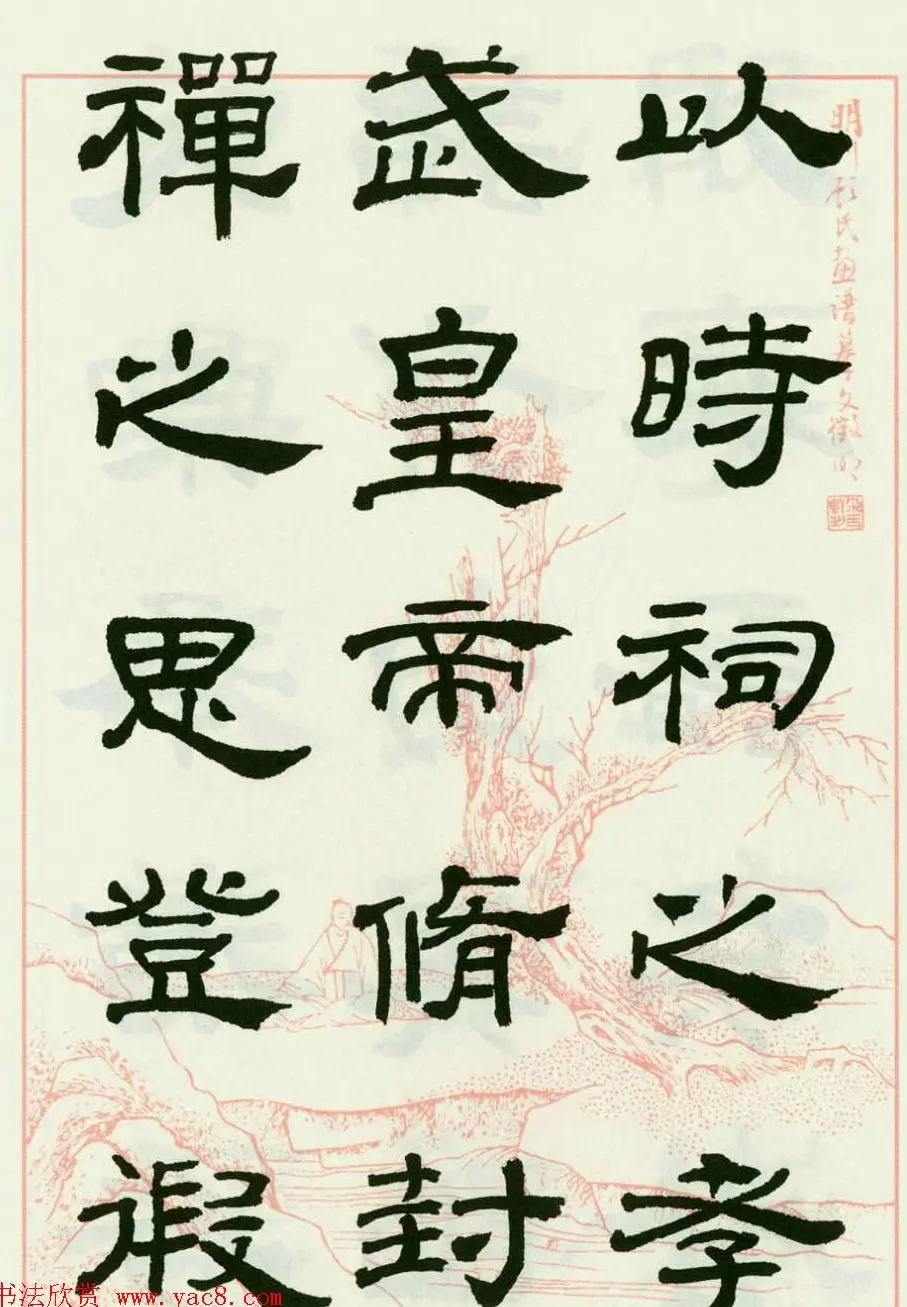 以時祠之孝
武皇帝脩封
禪之思登徦
明刊顾氏画谱摹文徵明
书法欣赏 www.yac8.com